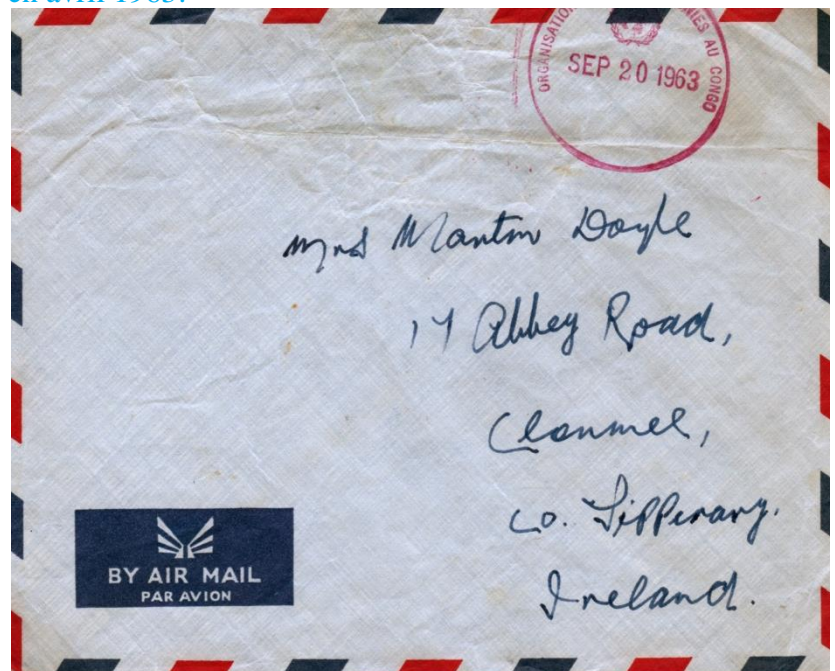 en avril 1963.
ORGANISATION AU CONGO
SEP 20 1963
Mrs Martin Doyle
17 Abbey Road,
Clonmel,
Co. Tipperary.
Ireland.
BY AIR MAIL
PAR AVION